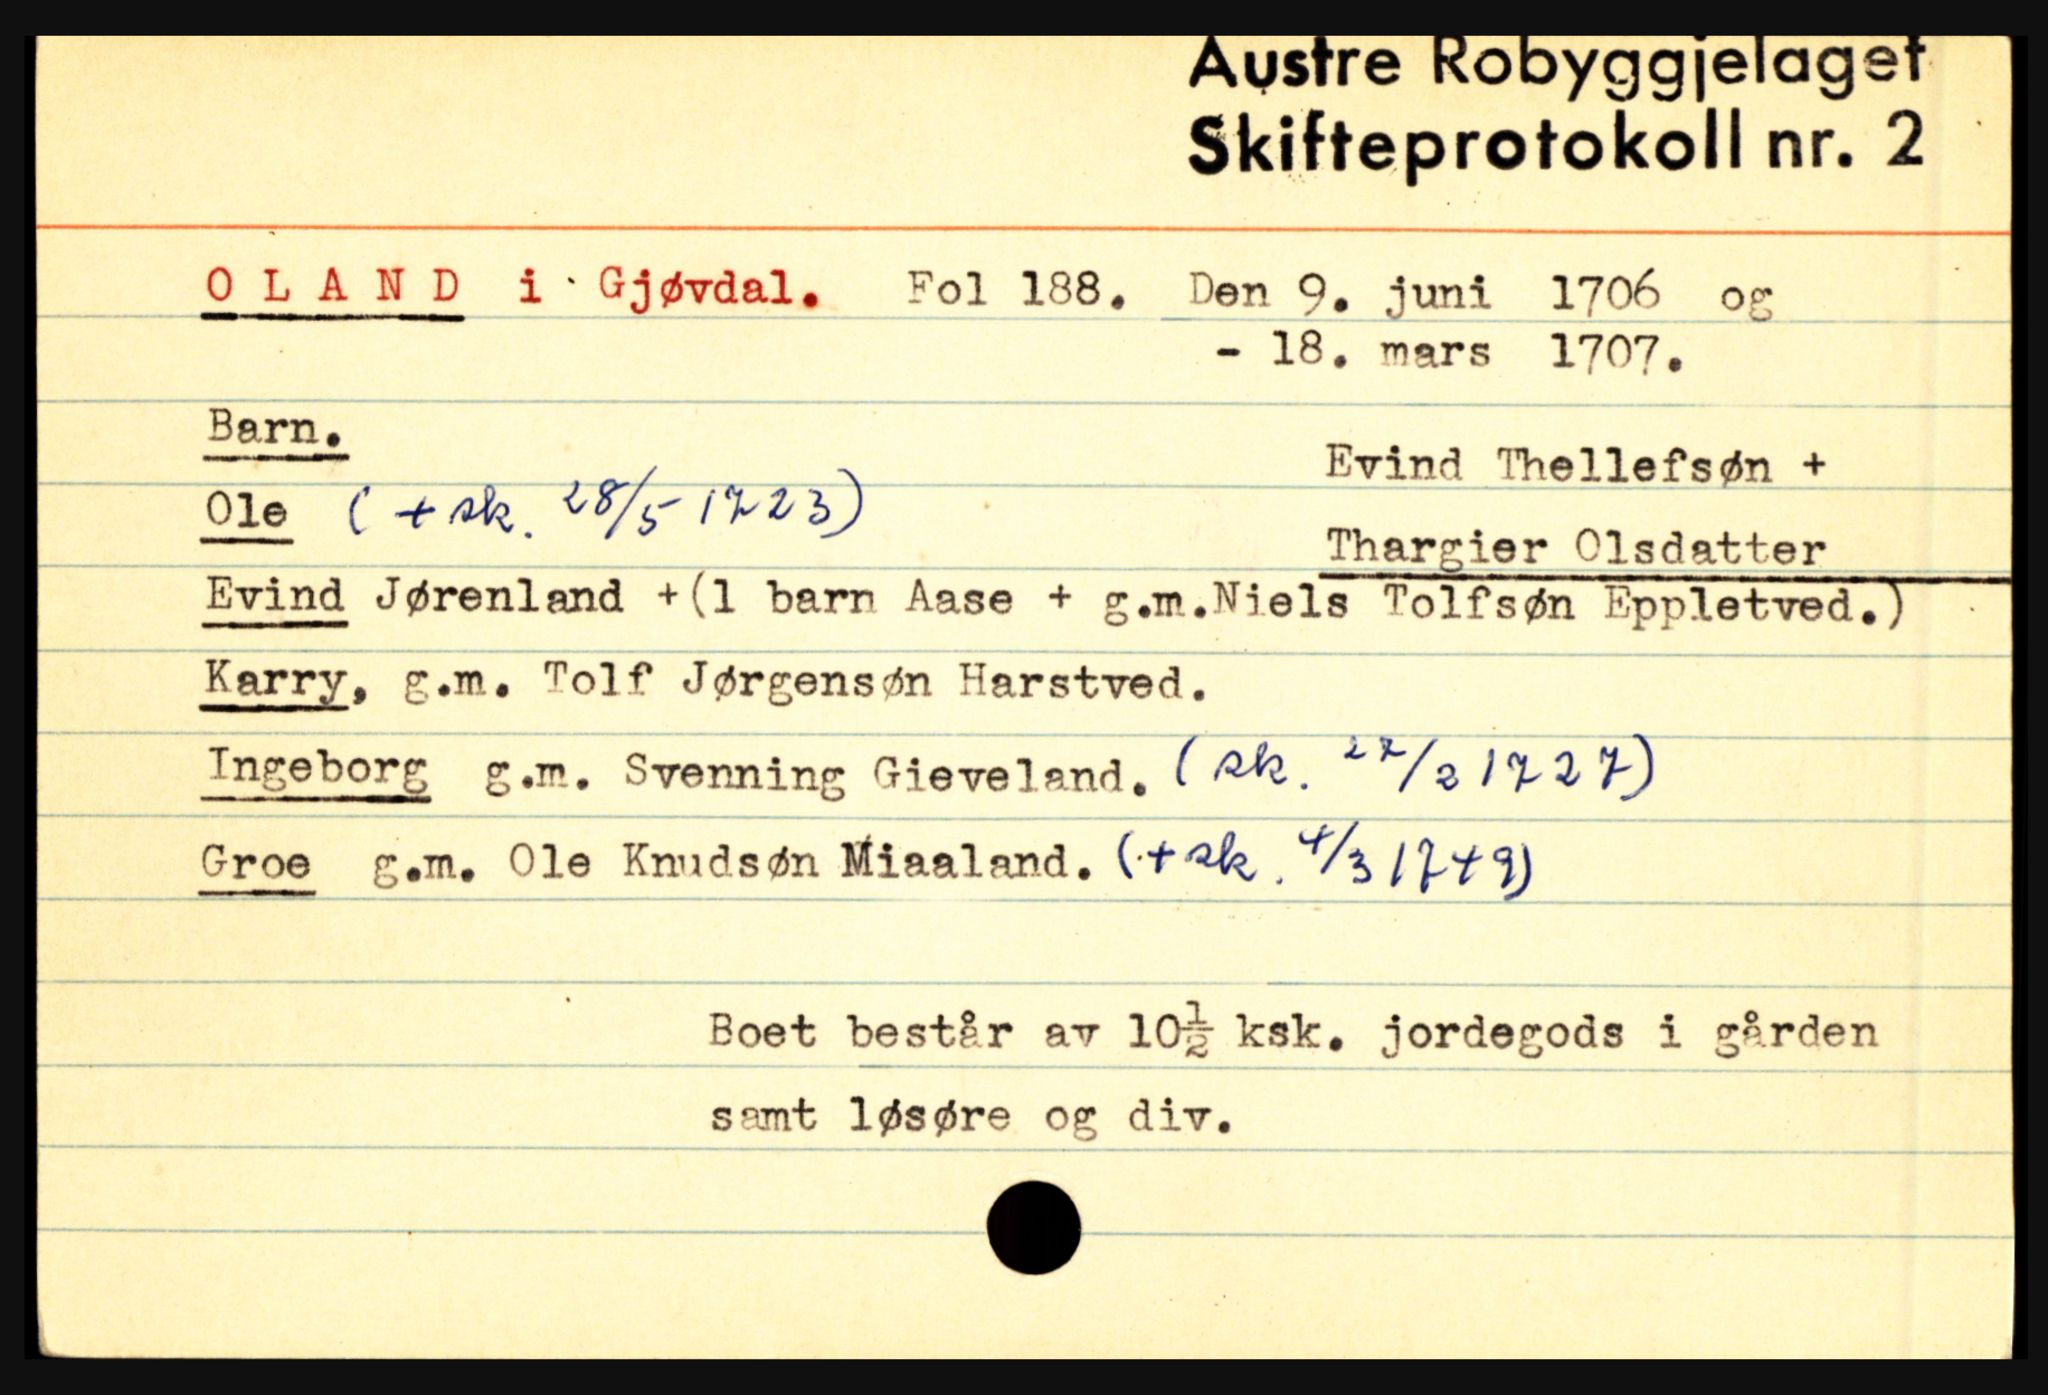 Austre Robyggjelaget
Skifteprotokoll nr. 2
OLAND i Gjøvdal. Fol 188. Den 9. juni 1706 og
- 18. mars 1707.
Barn.
Evind Thellefsøn +
Ole (+ sk. 28/5 1723)
Thargier Olsdatter
Evind Jørenland +(1 barn Aase + g.m.Niels Tolfsøn Eppletved.)
Karry, g.m. Tolf Jørgensøn Harstved.
Ingeborg g.m. Svenning Gieveland. (sk. 27/2 1727)
Groe g.m. Ole Knudsøn Miaaland. (+ sk. 4/3 1749)
Boet består av 10½ ksk. jordegods i gården
samt løsøre og div.